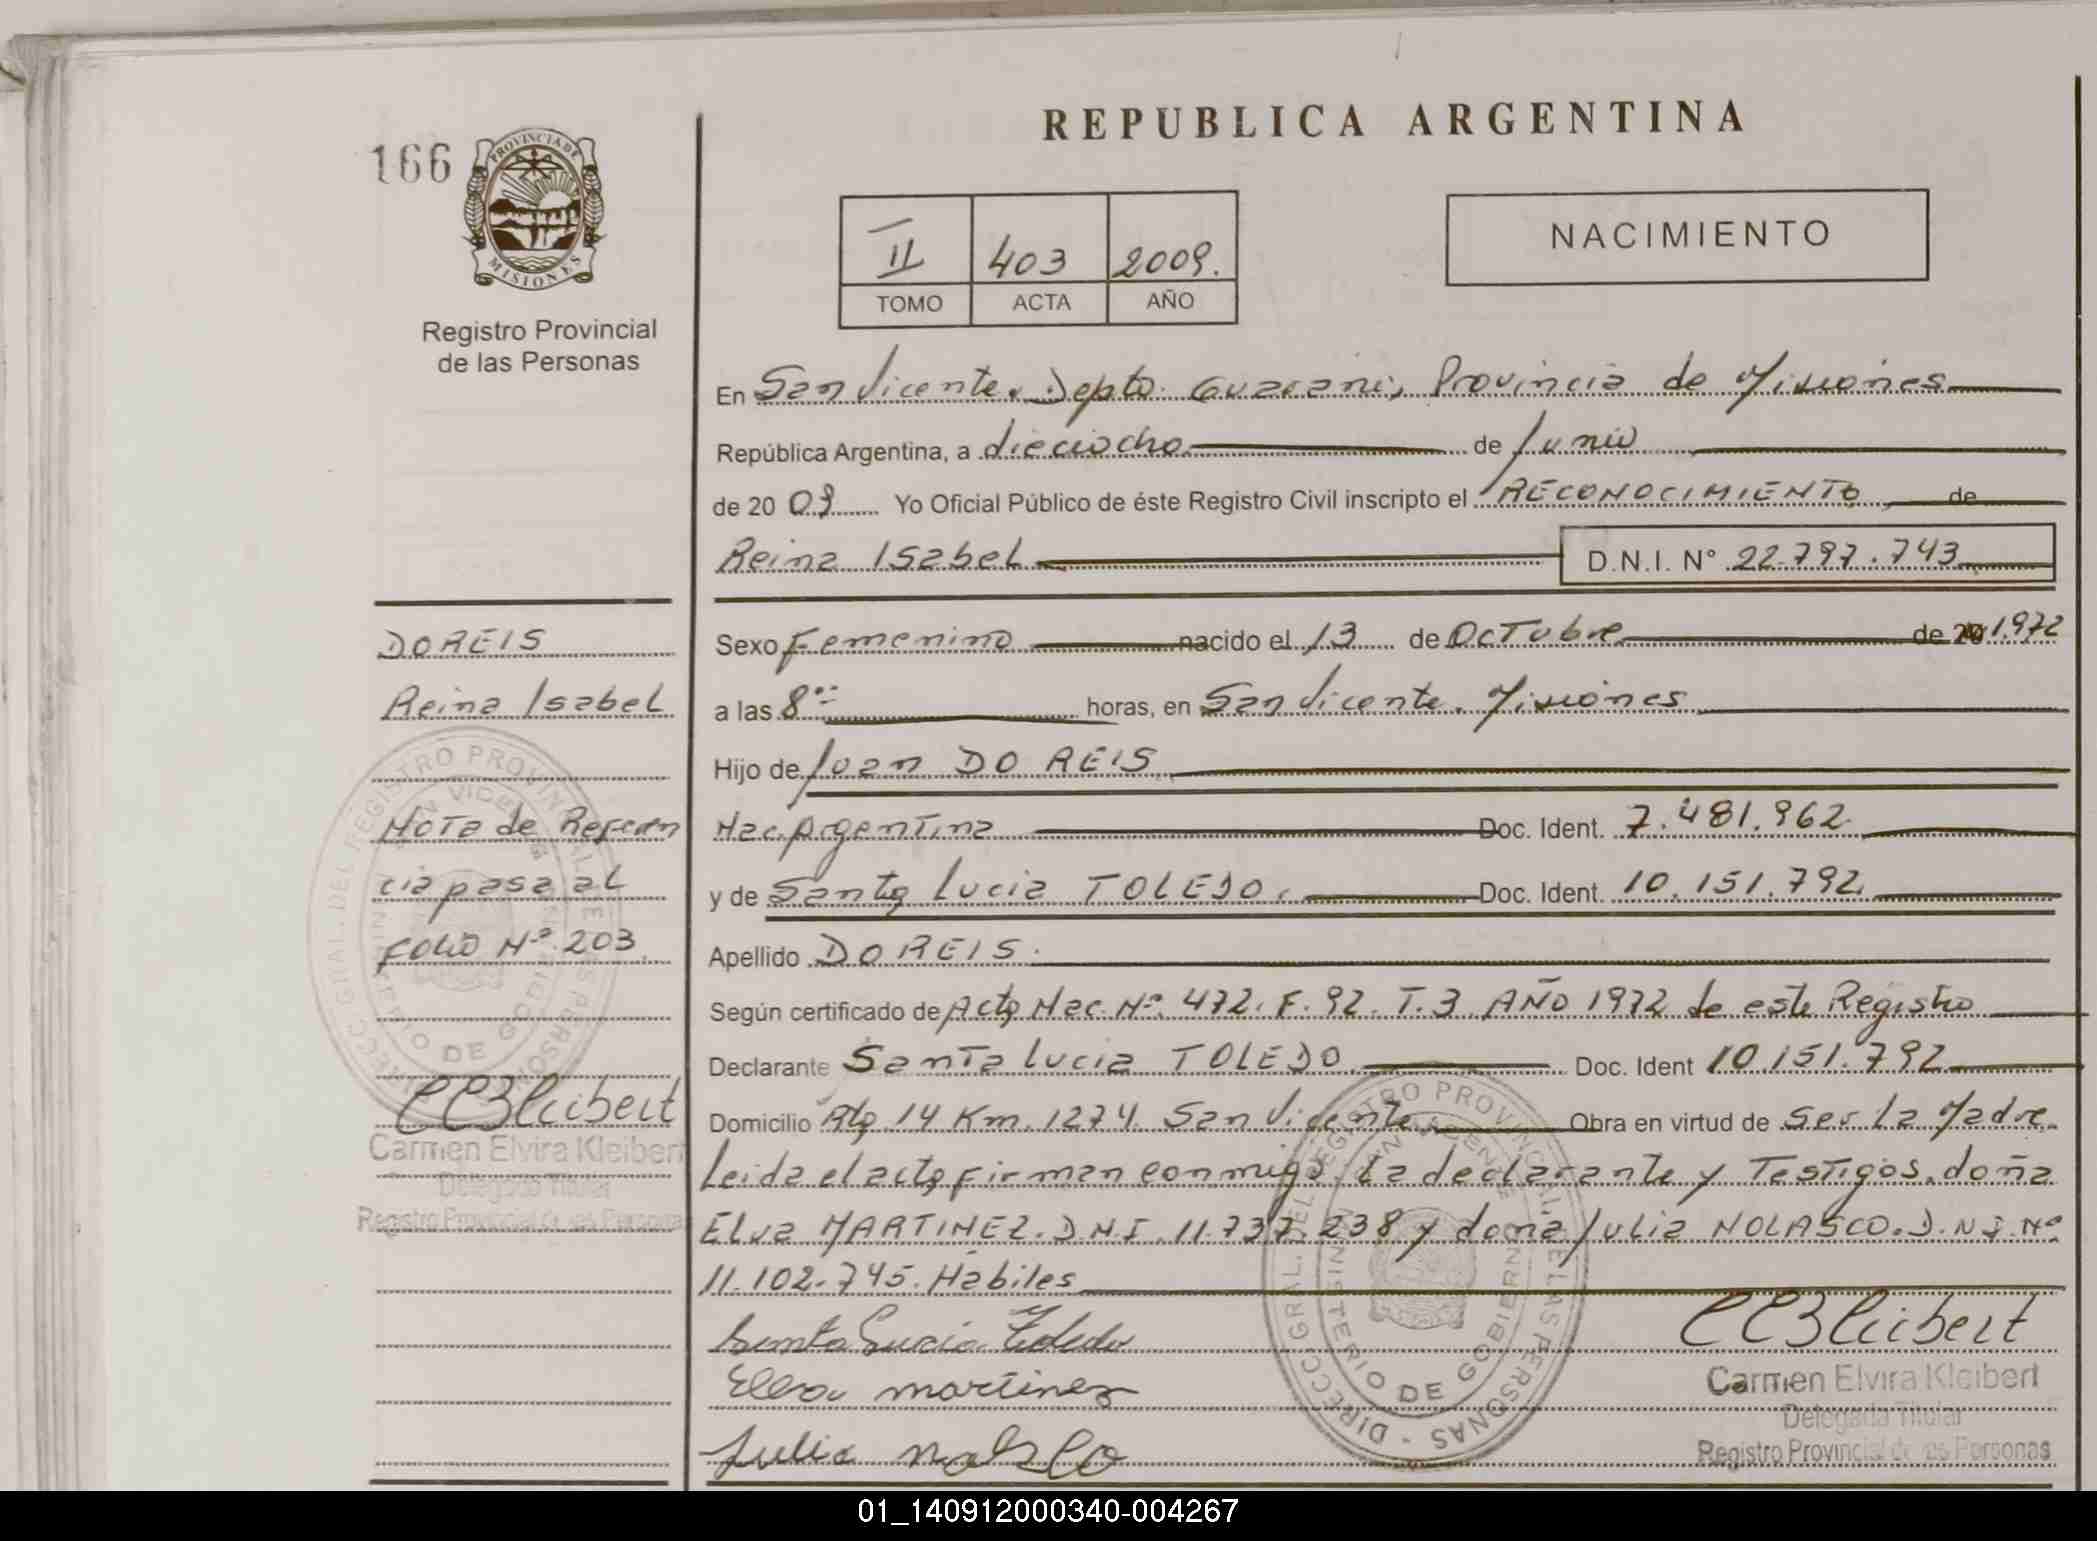 REPUBLICA ARGENTINA
166
PROVINCIA DE
MISIONES
Registro Provincial
de las Personas
II 403 2009.
TOMO ACTA AÑO
NACIMIENTO
En San Vicente. Depto. Guarani, Provincia de Misiones
República Argentina, a dieciocho de Junio
de 2009 Yo Oficial Público de éste Registro Civil inscripto el RECONOCIMIENTO de
Reina Isabel D.N.I. N° 22.797.743
Sexo Femenino nacido el 13 de Octubre de 20 1.972
a las 8 horas, en San Vicente. Misiones
Hijo de Juan DO REIS
Nac. Argentina Doc. Ident. 7.481.962
y de Santa Lucia TOLEDO. Doc. Ident. 10.151.792
Apellido DO REIS.
Según certificado de Acta Nac. Nº 472. F. 92. T. 3 AÑO 1972 de este Registro
Declarante Santa Lucia TOLEDO. Doc. Ident 10.151.792
Domicilio Rta 14 Km. 1274. San Vicente. Obra en virtud de Ser La Madre.
Leida el acta firman conmigo la declarante y Testigos. doña
Elva MARTINEZ. D.N.I. 11.737.238 y doña Julia NOLASCO. D.N.I. Nº
11.102.745. Habiles
Santa Lucia Toledo
Elva martinez
Julia nolasco
CEKleibert
Carmen Elvira Kleibert
Delegada Titular
Registro Provincial de las Personas
DIRECC. GRAL. DEL REGISTRO PROVINCIAL DE LAS PERSONAS
SAN VICENTE
MINISTERIO DE GOBIERNO
DO REIS
Reina Isabel
NOTA de Referen
cia pasa al
FOLIO Nº 203
CEKleibert
Carmen Elvira Kleibert
Delegada Titular
Registro Provincial de las Personas
DIRECC. GRAL. DEL REGISTRO PROVINCIAL DE LAS PERSONAS
SAN VICENTE
MINISTERIO DE GOBIERNO
01_140912000340-004267